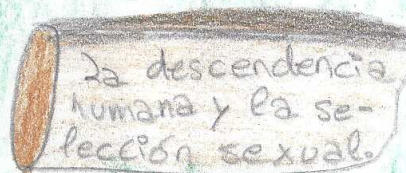 La descendencia
humana y la se-
lección sexual.